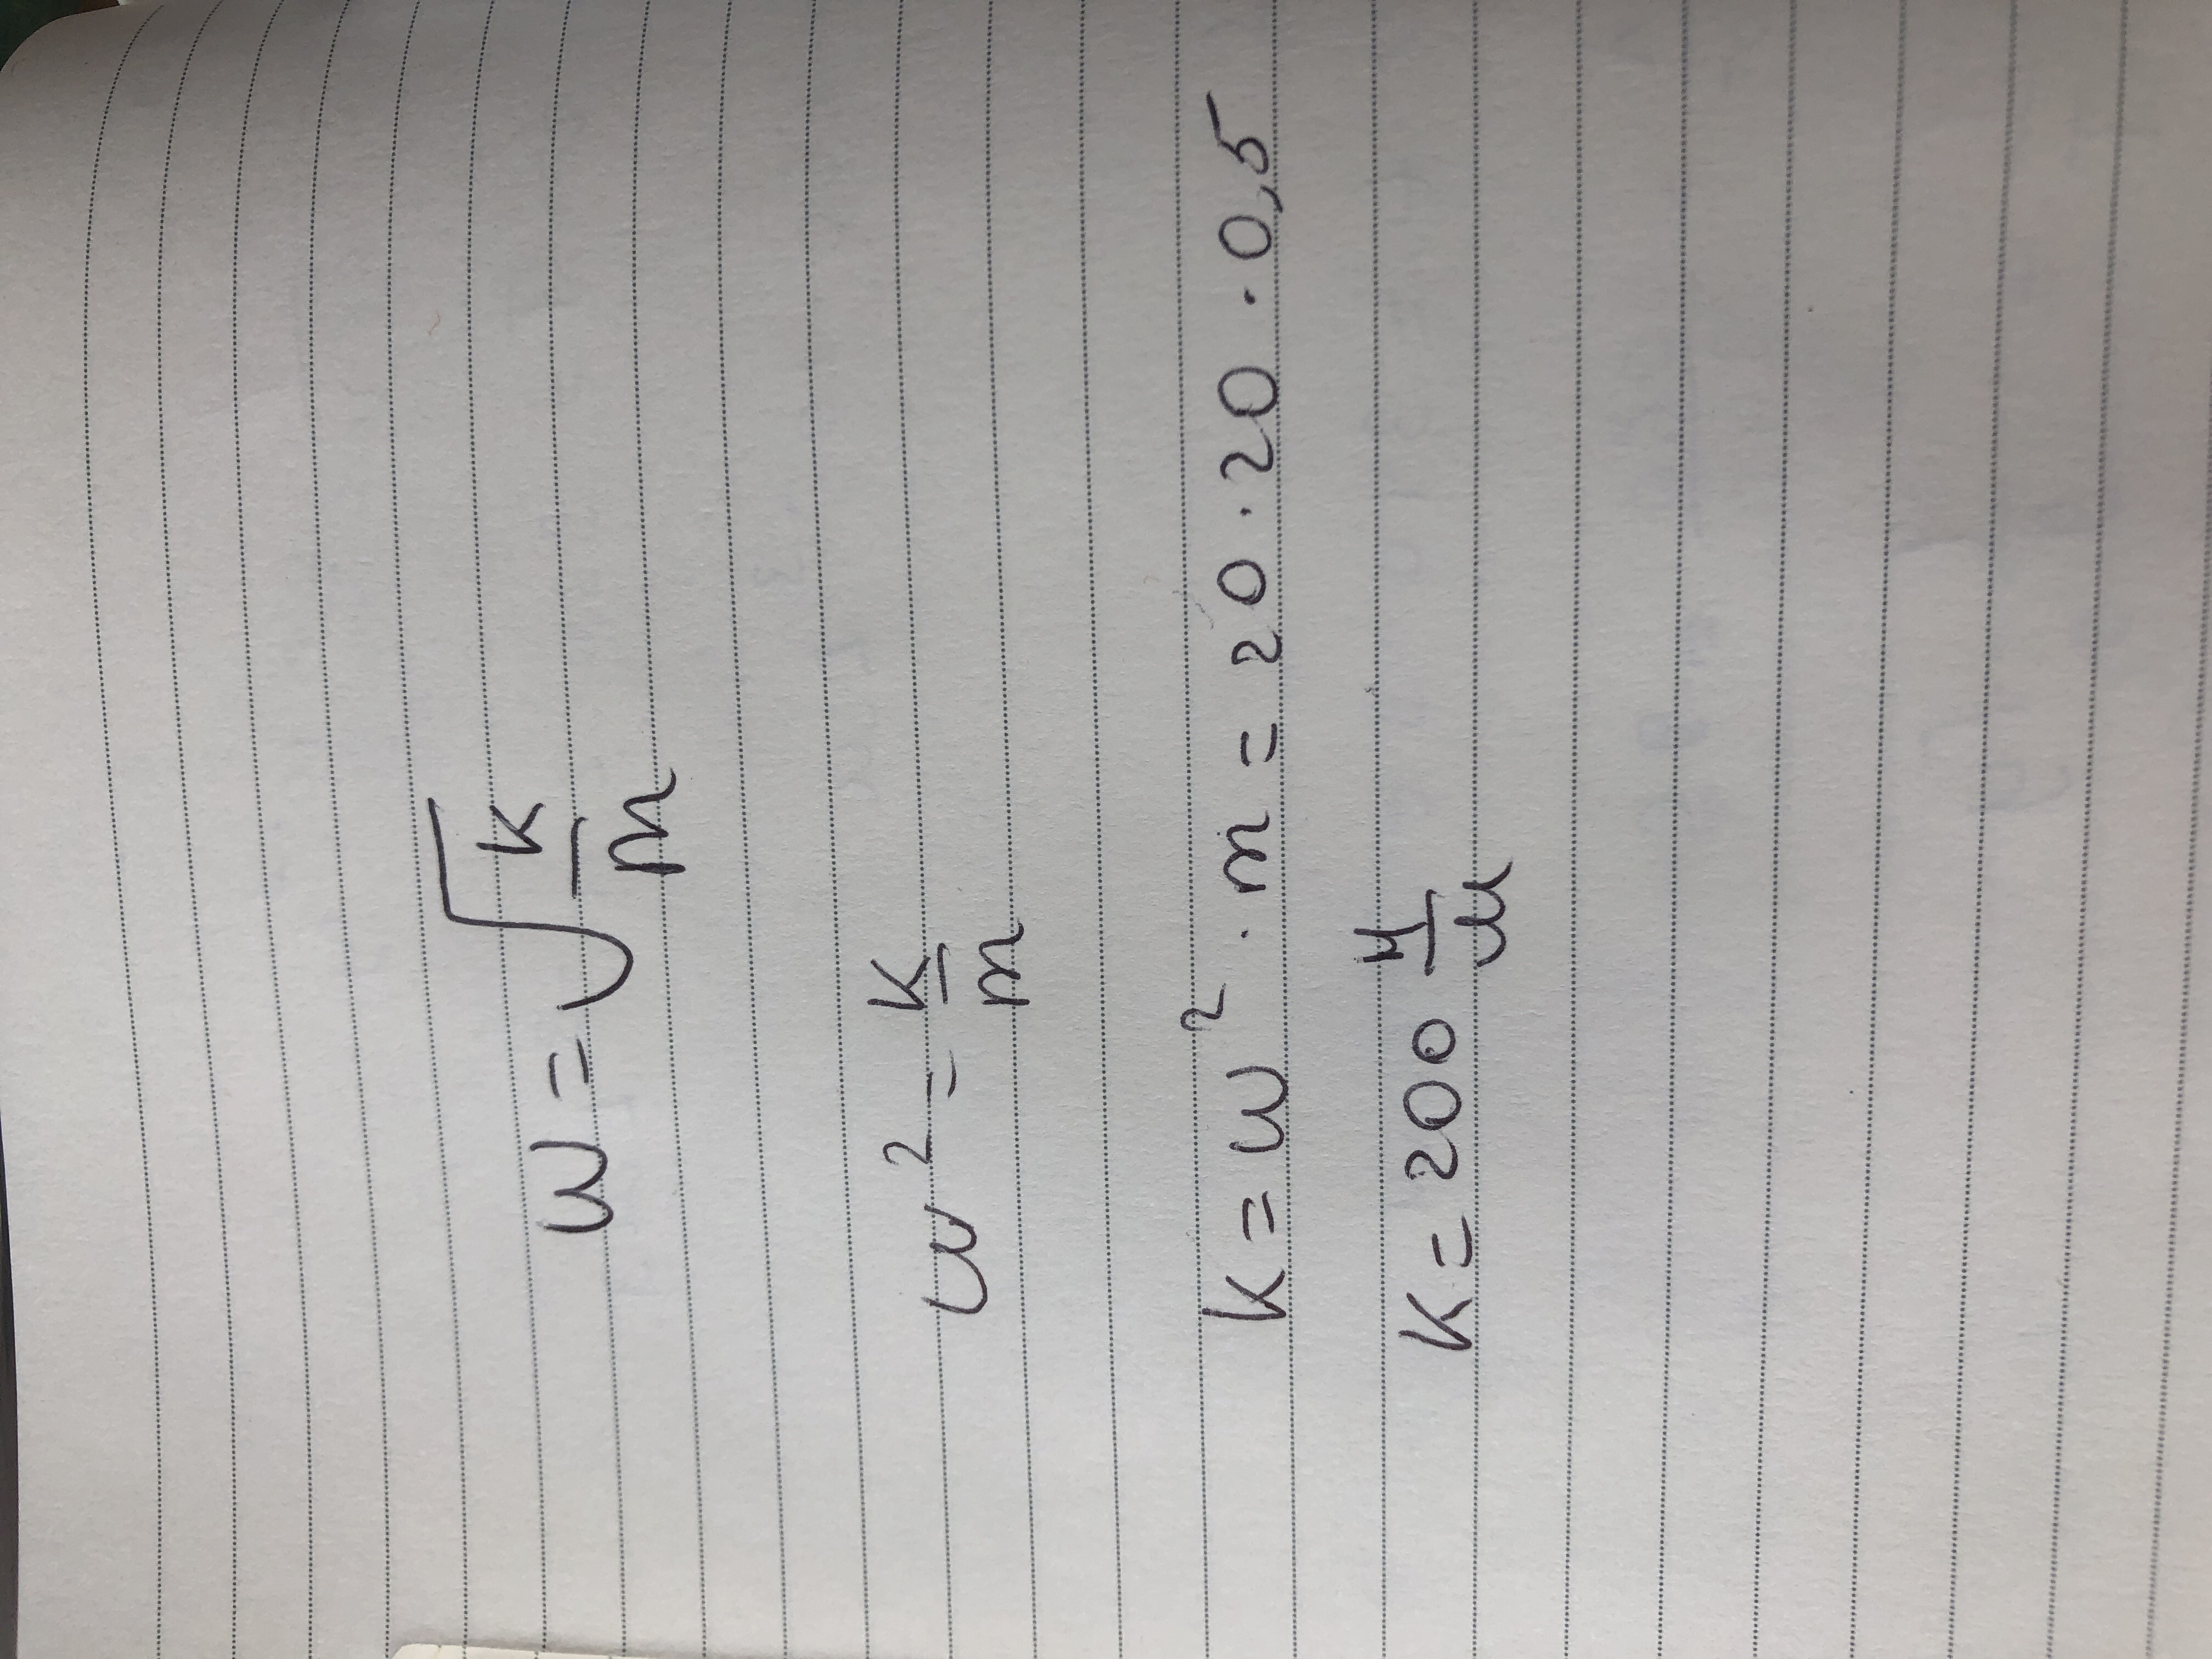 ω = √(k/m)
ω² = k/m
k = ω² · m = 20 · 20 · 0,5
k = 200 Н/м